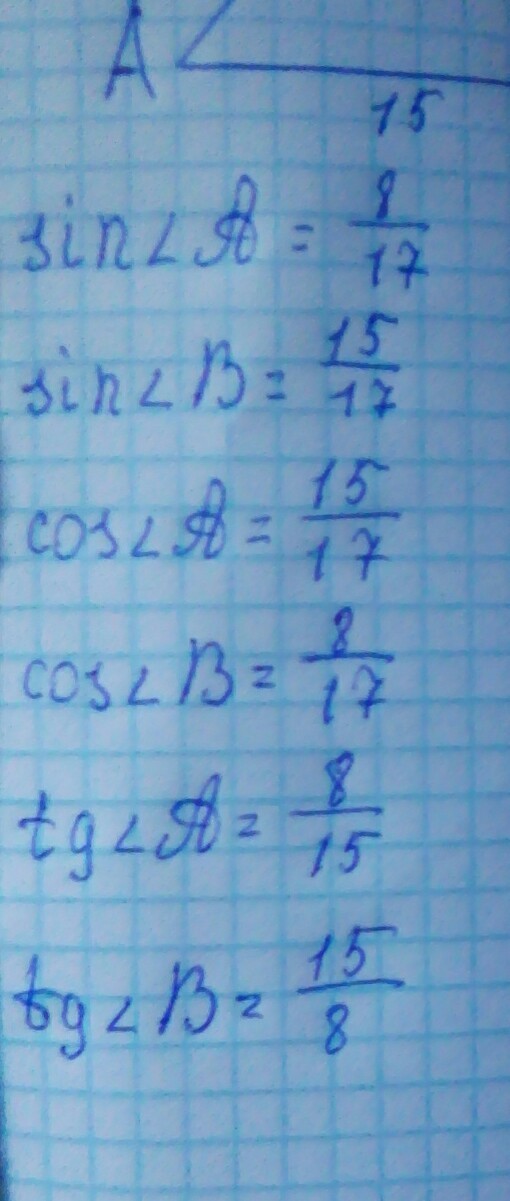 A
15
sin∠A = 8/17
sin∠B = 15/17
cos∠A = 15/17
cos∠B = 8/17
tg∠A = 8/15
tg∠B = 15/8